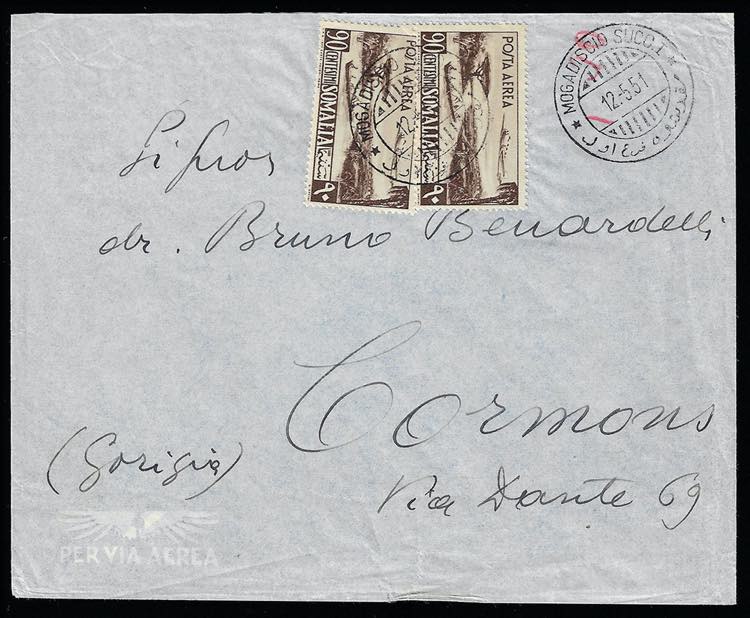 POSTA AEREA
90 CENTESIMI SOMALIA
٩٠
POSTA AEREA
90 CENTESIMI SOMALIA
٩٠
MOGADISCIO
12
MOGADISCIO SUCC. 1
12.5.51
dr. Bruno Benardelli
Cormons
(Gorizia)
Via Dante 69
PER VIA AEREA